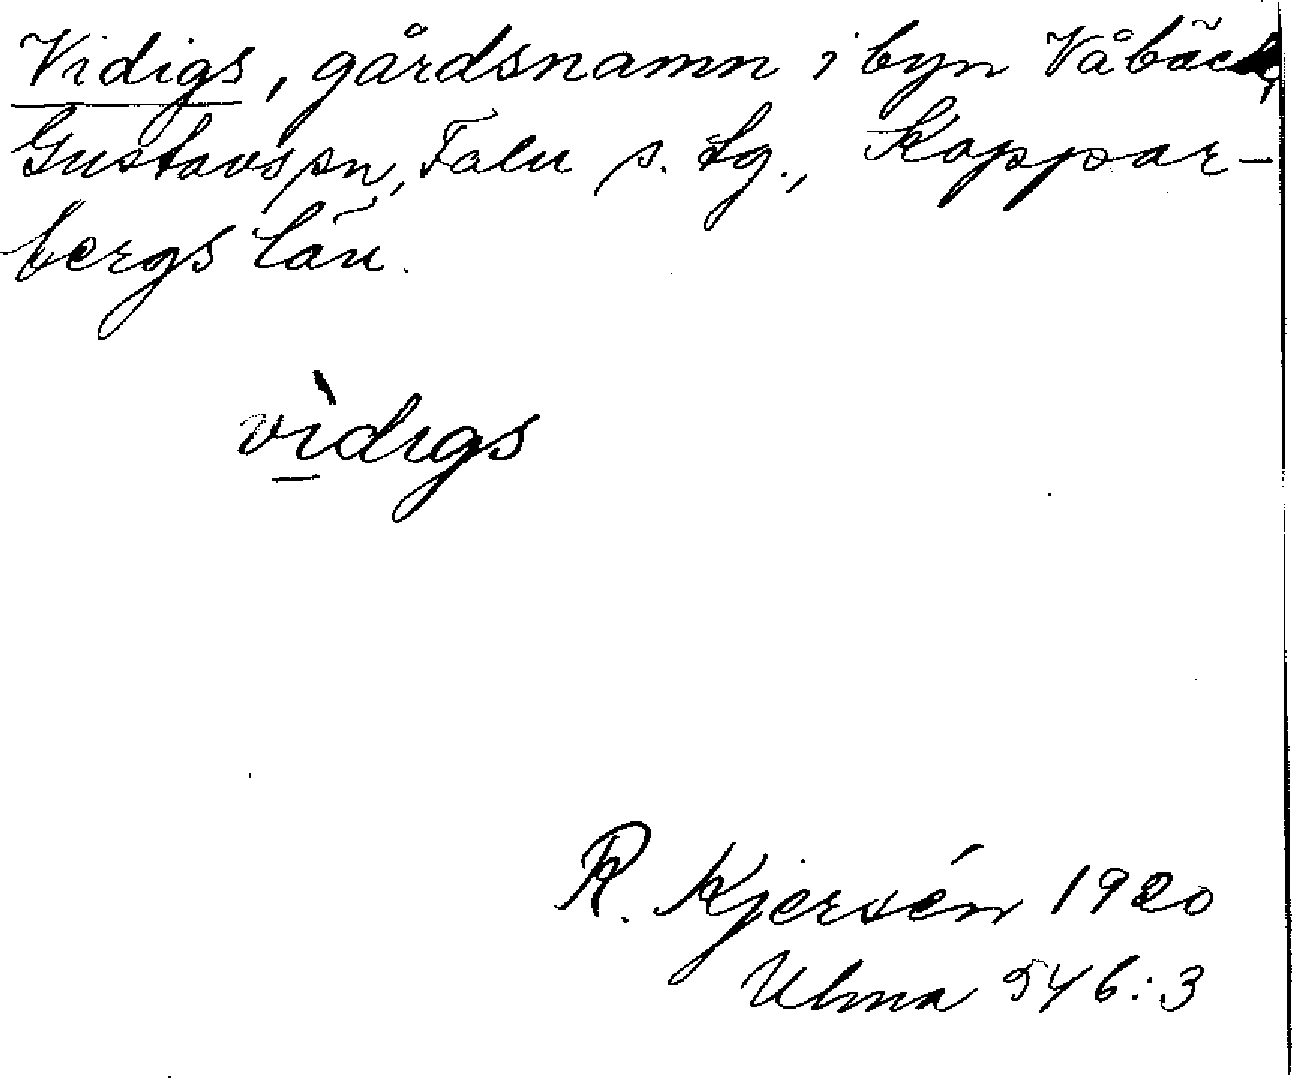 Vidigs, gårdsnamn i byn Våbäck,
Gustavs sn, Falu s. tg., Koppar-
bergs län.
vìdigs
R. Kjersén 1920
Ulma 546:3